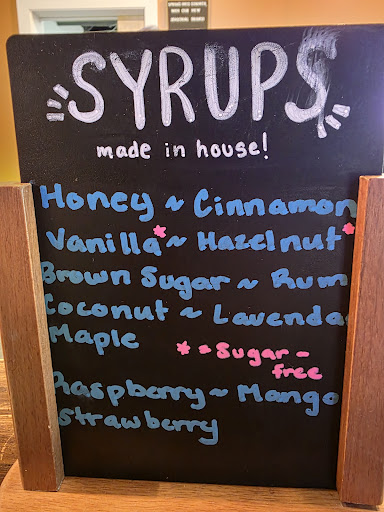 SYRUPS
made in house!
Honey ~ Cinnamon
Vanilla* ~ Hazelnut*
Brown Sugar ~ Rum
Coconut ~ Lavenda
Maple
* = Sugar-
free
Raspberry ~ Mango
Strawberry